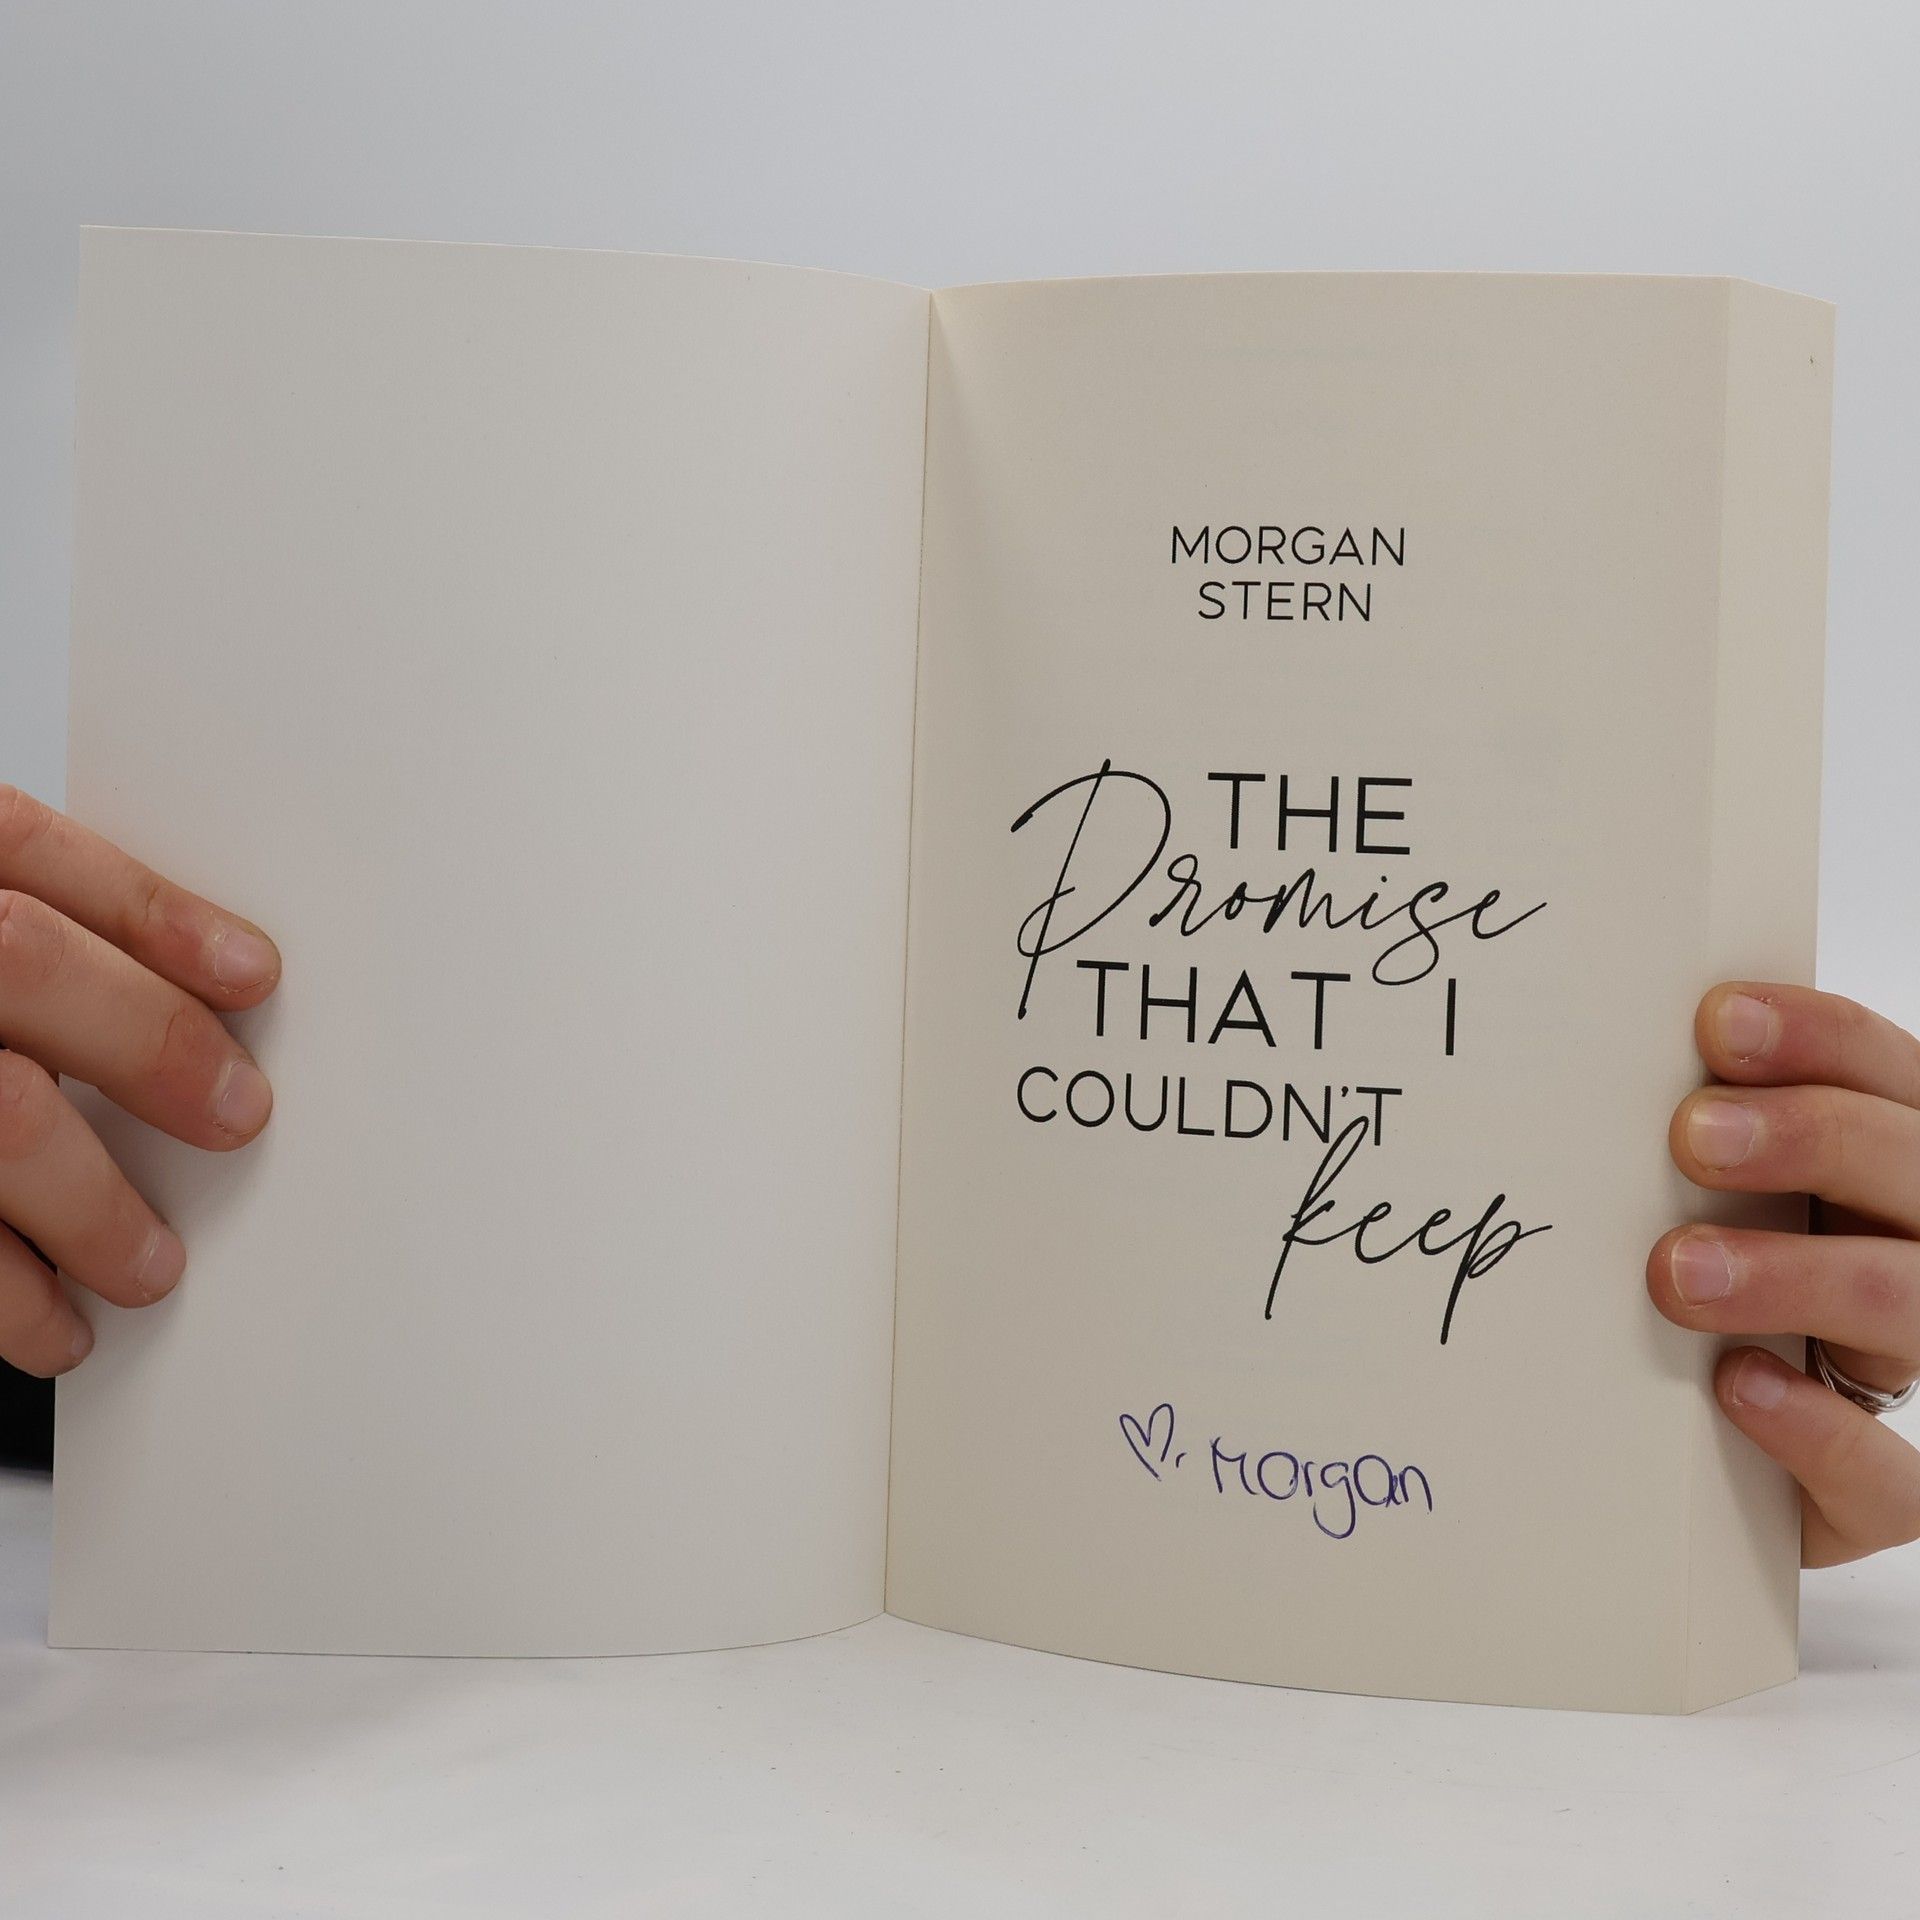 MORGAN
STERN
THE
Promise
THAT I
COULDN'T
keep
♡, Morgan